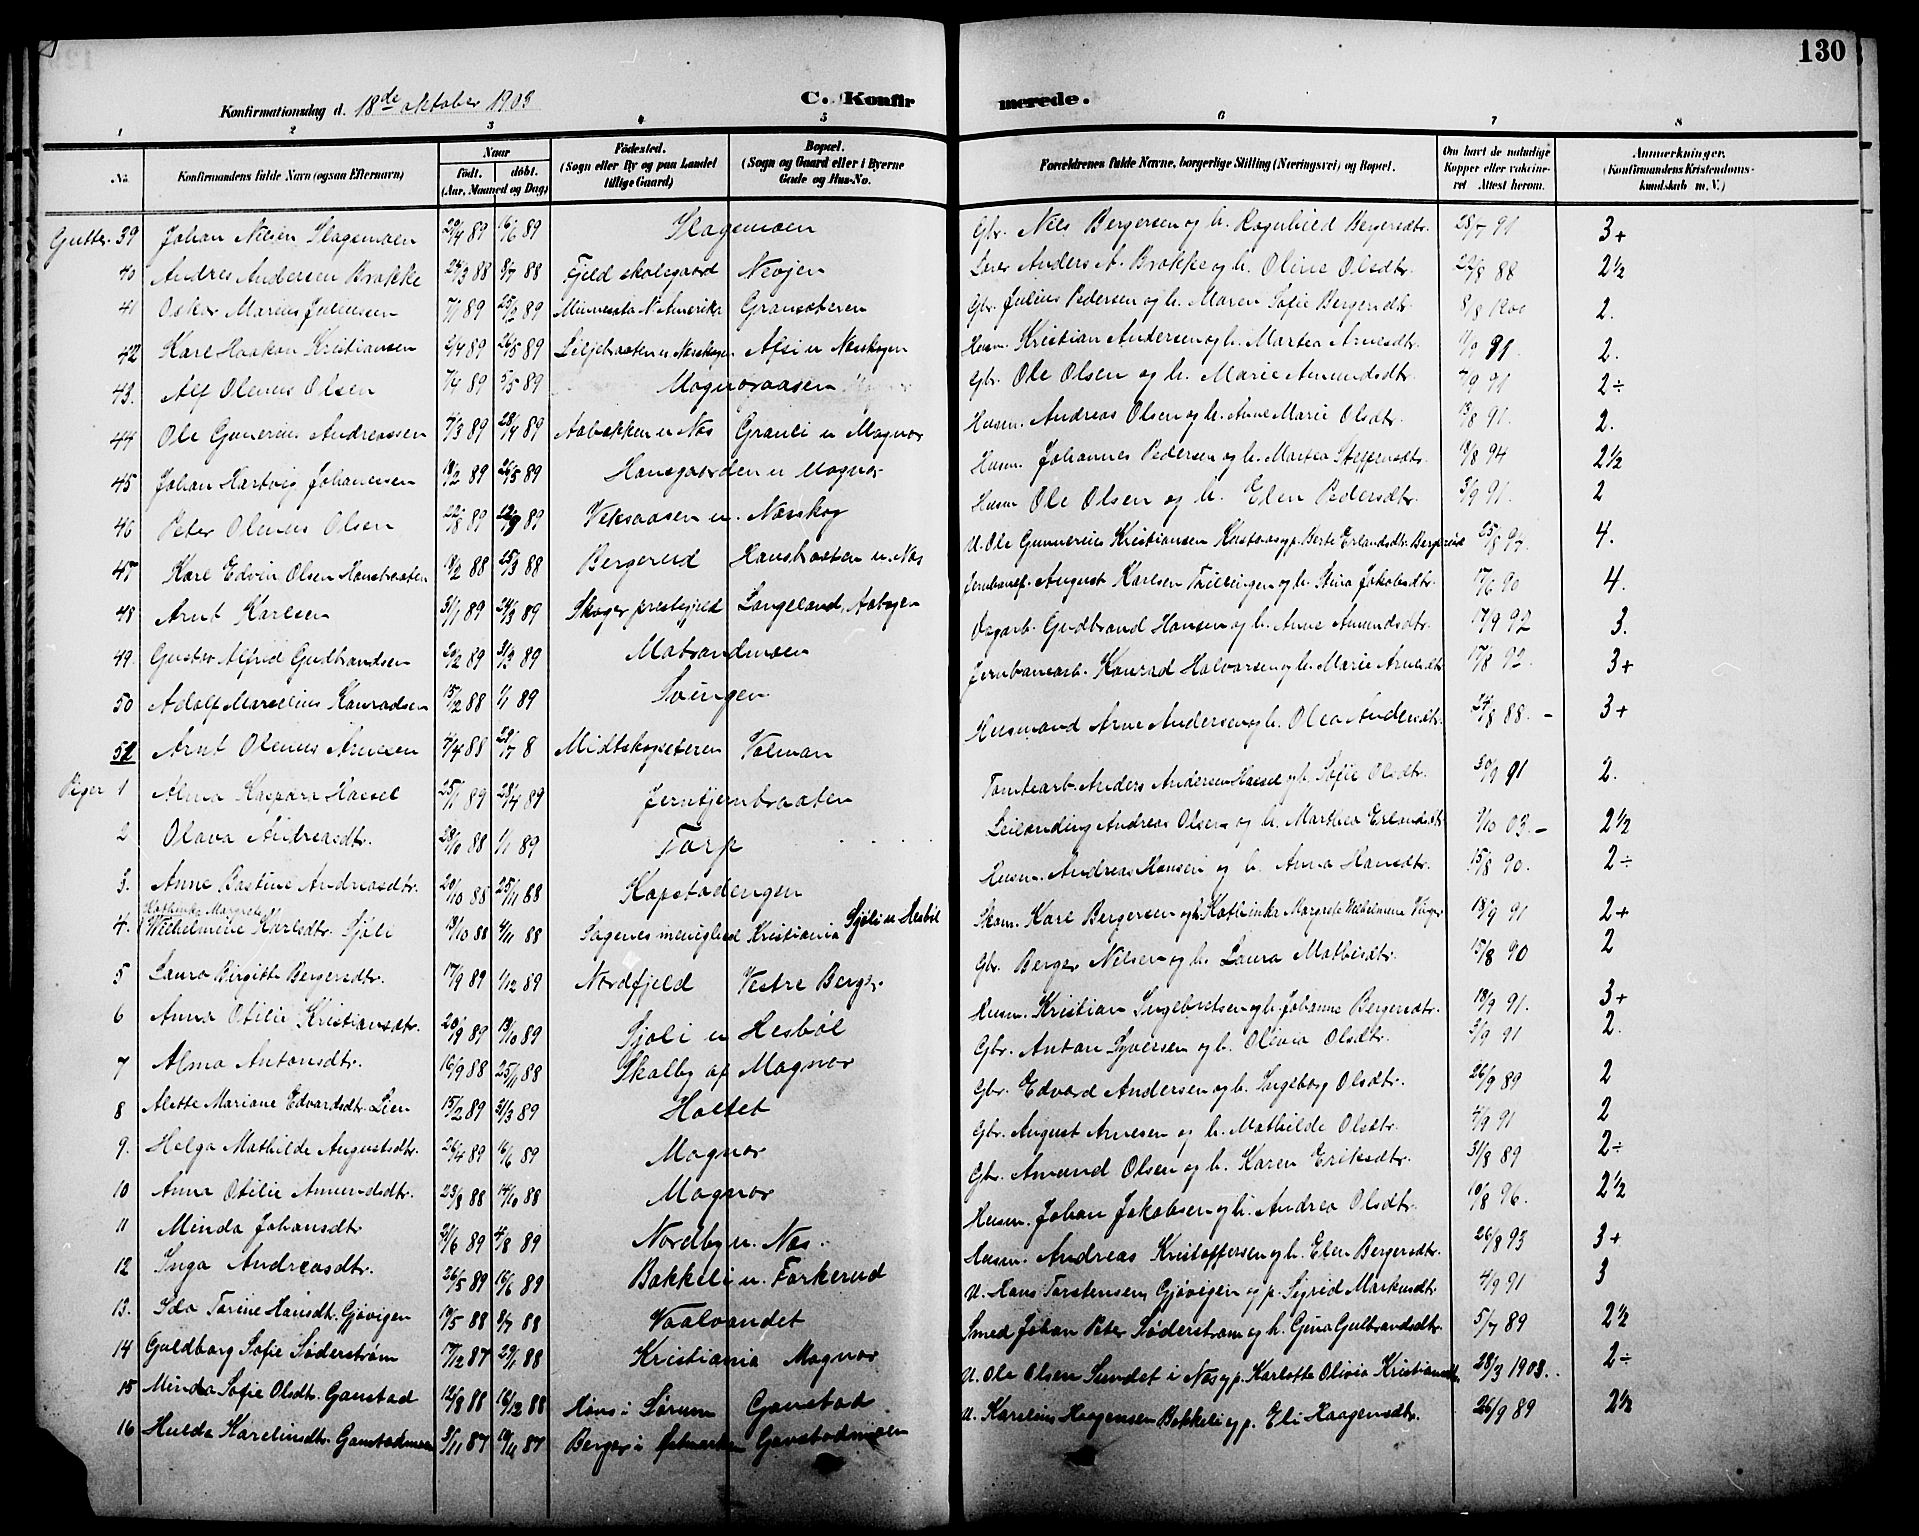 130
Konfirmationsdag d. 18de oktober 1903 C. Konfirmerede.
1 2 3 4 5 6 7 8
No. Konfirmandens fulde Navn (ogsaa Efternavn) Naar født. døbt. (Aar, Maaned og Dag) Fødested. (Sogn eller By og paa Landet tillige Gaard) Bopæl. (Sogn og Gaard eller i Byerne Gade og Hus-No. Forældrenes fulde Navne, borgerlige Stilling (Næringsvei) og Bopæl. Om havt de naturlige Kopper eller vakcineret Attest herom. Anmerkninger. (Konfirmandens Kristendomskundskab m. V.)
Gutter. 39 Johan Nilsen Slagemoen 89 16/6 89 Slagemoen Gbr. Nils Bergersen og h. Ragnhild Bergersdtr. 28/7 91 3+
40 Andres Andersen Brække 24/3 88 8/7 88 Fjeld skolegaard Anders A. Brække og h. Oline Olsdtr. 88 2½
41 Oskar Marius Juliussen 7/1 89 25/2 89 Minnesota N. Amerika Gransæteren Gbr. Julius Pedersen og h. Maren Sofie Bergersdtr. 2.
42 Karl Haakon Kristiansen 2/4 89 26/5 89 Liljebraaten u. Nørskogen u. Nørskogen Husm. Kristian Andersen og h. Martea Arnesdtr. 11/9 91. 2.
43. Alf Olenus Olsen 7/4 89 5/5 89 Magnoraasen Gbr. Ole Olsen og h. Marie Amundsdtr. 4/9 91 2÷
44 Ole Gunerius Andreassen 4/3 89 28/4 89 Aabakken u. Næs Granli u. Magnor Husm. Andreas Olsen og h. Anne Marie Olsdtr. 13/8 91. 2.
45 Johan Hartvig Johannesen 89 26/5 89 Hansgaarden u. Magnor Husm. Johannes Pedersen og h. Martea Steffensdtr. 94 2½
46 Peter Olenus Olsen 22/8 89 89 Veksaasen u. Nørskog Husm Ole Olsen og h. Elen Pedersdtr. 3/9 91. 2
47 Karl Edvin Olsen Hanstraaten 88 25/3 88 Bergerud Hanstraaten u. Næs U. Ole Gunnerius Kristiansen og p. Berte Erlandsdtr. Bergerud 25/8 4.
48 Arnt Karlsen 31/1 89 24/3 89 Skoger prestegjeld Langeland, Aabogen August Karlsen og h. Stina Jakobsdtr. 17/6 90 4.
49. Gustav Alfred Gudbrandsen 20/2 89 31/3 89 Matrandmoen Dagarb. Gudbrand Hansen og h. Anne Amundsdtr. 17/9 92 3.
50 Adolf Marselius Konradsen 15/12 88 1/1 89 Svingen. Jernbanearb. Konrad Halvorsen og h. Marie Arnesdtr 17/8 92. 3+
51 Arnt Olenus Arnesen 4/4 88 29/7 8 Midtskogsæteren Valman Husmand Arne Andersen og h. Olea Andersdtr. 24/8 88. – 3+
Piger 1 Alma Kaspara Hassel 25/1 89 28/4 89 Jerntjernbraaten Tomtearb. Anders Andersen Hassel og h. Sofie Olsdtr. 30/9 91 2.
2 Olava Andreasdtr. 28/10 88 1/1 89 Torp Leilænding Andreas Olsen og h. Marthea Erlandsdtr 9/10 03. – 2½
3. Anne Bastine Andreasdtr. 20/10 88 25/11 88 Kapstadengen Husm. Andreas Hansen og h. Anna Hansdtr. 15/8 90. 2÷
4. Kathinka Margrete Wilhelmine Karlsdtr. Sjøli 13/10 88 4/11 88 Sagenes menighed Kristiania Sjøli u. Hesbøl Karl Bergersen og h. Kathinka Margrete Wilhelmine 18/9 91 2+
5 Laura Birgitte Bergersdtr. 17/9 89 1/12 89 Nordfjeld Vestre Berger Gbr. Berger Nilsen og h. Laura Mathisdtr. 15/8 90 2
6 Anna Otilie Kristiansdtr. 20/9 89 13/10 89 Sjøli u. Hesbøl Husm. Kristian Ingebretsen og h. Johanne Bergersdtr. 18/9 91. 3+
7 Alma Antonsdtr. 16/9 88 25/11 88 Skalby af Magnor Gbr. Anton Syversen og h. Olivia Olsdtr. 3/9 91 2.
8 Alette Mariane Edvardsdtr. Lien 15/2 89 31/3 89 Holtet Gbr. Edvard Andersen og h. Ingeborg Olsdtr. 26/9 89 2
9. Helga Mathilde Augustsdtr. 26/4 89 16/6 89 Magnor Gbr. August Arnesen og h. Mathilde Olsdtr. 4/9 91 2
10 Anna Otilie Amundsdtr. 23/8 88 14/10 88 Magnor Gbr. Amund Olsen og h. Karen Eriksdtr. 31/8 89 2÷
11 Minda Johansdtr 21/6 89 4/8 89 Nordby u. Næs. Husm. Johan Jakobsen og h. Andrea Olsdtr. 10/8 96. 2½
12 Inga Andreasdtr. 26/5 89 16/6 89 Bakkeli u. Forkerud Husm. Andreas Kristoffersen og h. Elen Bergersdtr. 26/8 93 3+
13. Ida Torine Hansdtr. Gjøvigen 19/5 88 8/7 88 Vaalvandet U. Hans Torstensen Gjøvigen og p. Sigrid Markusdtr. 4/9 91 3
14 Guldborg Sofie Søderstrøm 17/12 87 29/1 88 Kristiania Magnor Smed Johan Peter Søderstrøm og h. Gina Gulbrandsdtr. 5/7 89 2½
15 Minda Sofie Olsdtr. Ganstad 12/8 88 16/12 88 i Sørum Ganstad U. Ole Olsen Sundet i Næs og p. Karlotte Olivia Kristiansdtr. 28/3 1903. 2÷
16 Hulda Karelinsdtr. Ganstadmoen 3/11 87 87 Berger i Ganstadmoen U. Karelius Haagensen Bakkeli og p. Eli Haagensdtr. 26/9 89 2½